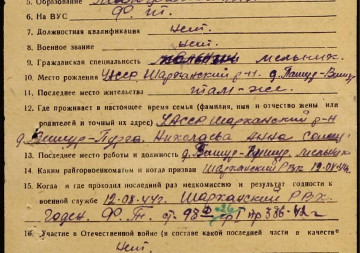 5. Образование
6. На ВУС Ф. т.
7. Должностная квалификация нет.
8. Военное звание нет.
9. Гражданская специальность мельник.
10. Место рождения УАССР Шарканский р-н. д. Пашур-Вишур
11. Последнее место жительства там-же.
12. Где проживает в настоящее время семья (фамилия, имя и отчество жены или
родителей и точный их адрес) УАССР Шарканский р-н
д. Вишур-Пурга. Николаева Анна
13. Последнее место работы и должность д. мельник
14. Каким райгорвоенкоматом и когда призван Шарканский РВК 12-08-44г.
15. Когда и где проходил последний раз медкомиссию и результат годности к
военной службе 12-08-44г. Шарканский РВК.
Годен. Ф. Т. ст. 93 гр I пр 336-42г
16. Участие в Отечественной войне (в составе какой последней части в качеств
нет.